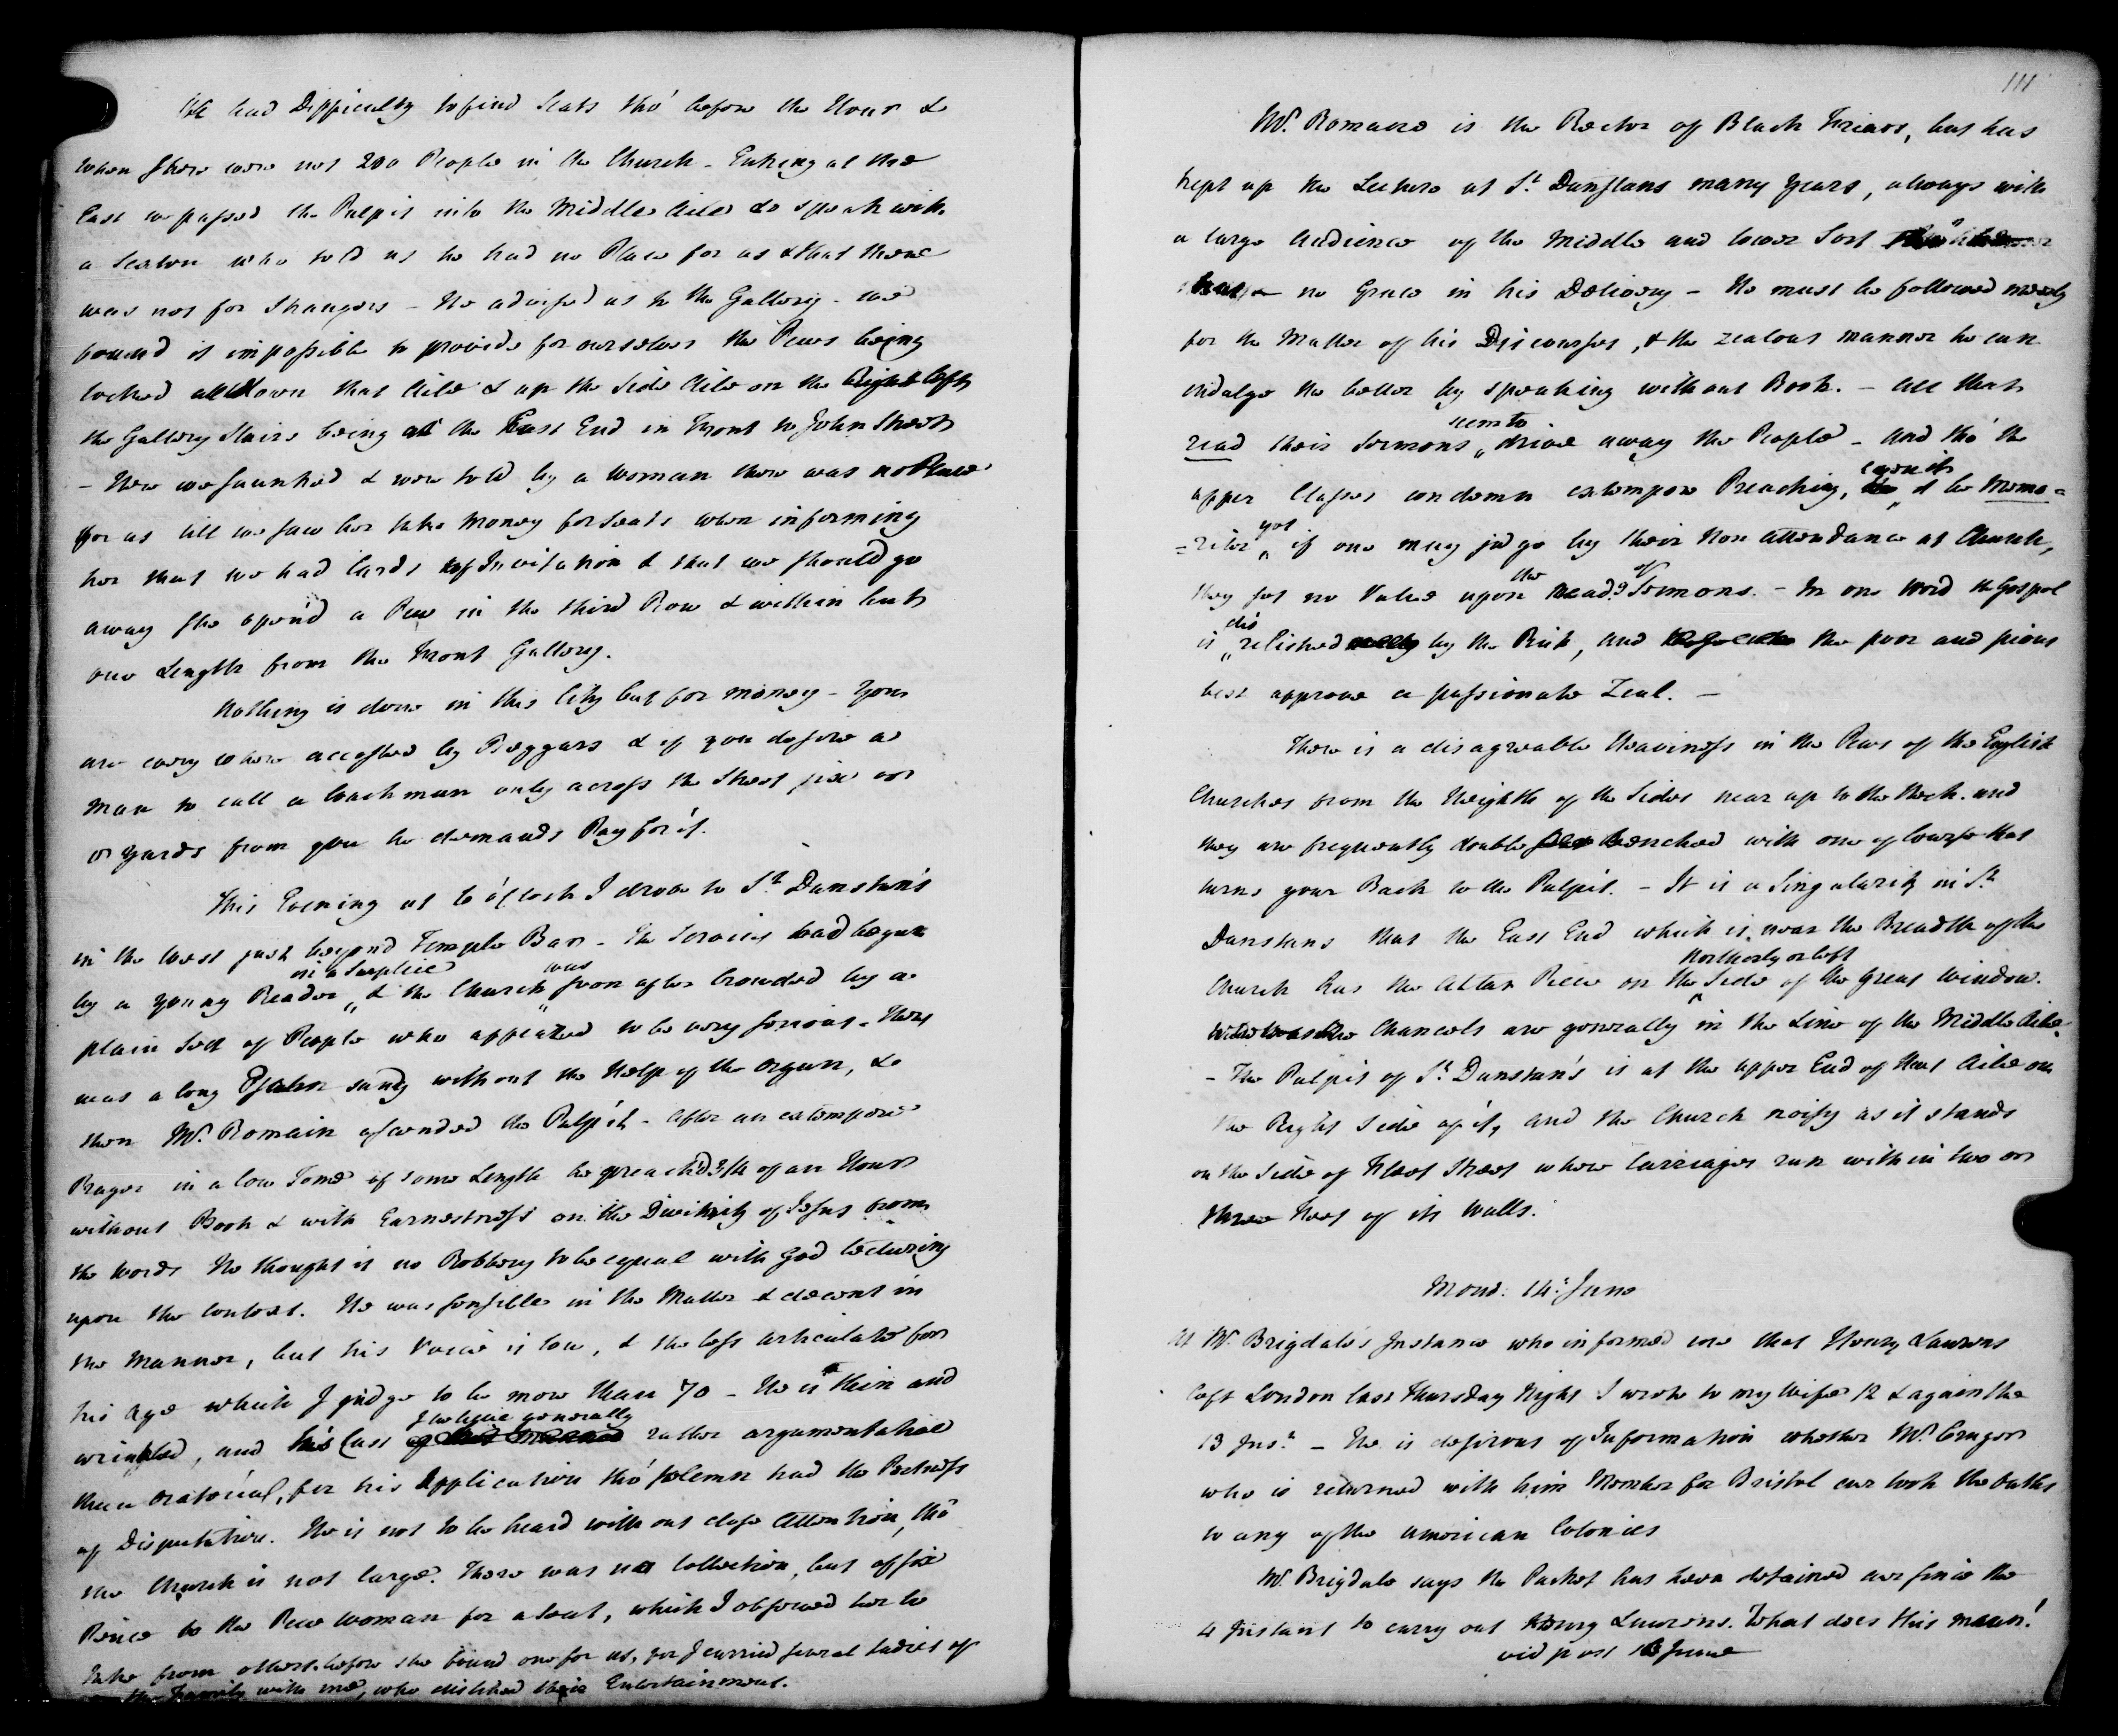 We had Difficulty to find Seats tho' before the Hour &
when there were not 200 People in the Church - Entring at the
East we passed the Pulpit into the Middle Aile to speak with
a Sexton who told us he had no Place for us & that there
was not for Strangers - He advised us to the Gallery - we
found it impossible to provide for ourselves the Pews being
locked all down that Aile & up the Side Aile on the left
the Gallery Stairs being at the East End in Front to John Street
- Here we saunted & were told by a Woman there was no Place
for us till we saw her take Money for Seats when informing
her that we had Cards of Invitation & that we should go
away she open'd a Pew in the third Row & within but
one Length from the Front Gallery.
Nothing is done in this City but for money - You
are every where accosted by Beggars & if you desire a
man to call a Coachman only across the Street six or
8 yards from you he demands Pay for it.
This Evening at 6 o'Clock I drove to St Dunstan's
in the West just beyond Temple Bar - The Service had begun
in a Surplice was
by a young Reader & the Church soon after crowded by a
plain Sort of People who appeared to be very serious - There
was a long Psalm sung without the Help of the Organ, &
then Mr. Romain ascended the Pulpit - After an extempore
Prayer in a low Tone of some Length he preach'd 3/4 of an Hour
without Book & with Earnestness on the Divinity of Jesus from
the Words He thought it no Robbery to be equal with God lecturing
upon the Context. He was sensible in the Matter & decent in
the Manner, but his Voice is low, & the less articulate for
his Age which I judge to be more than 70 - He is thin and
I believe generally
wrinkled, and his Cast rather argumentative
than oratorial, for his Application tho' solemn had the Pertness
of Disputation. He is not to be heard without close Attention, tho'
the Church is not large. There was no Collection, but of six
Pence to the Pew Woman for a Seat, which I observed her to
take from others before she found one for us, for I carried several Ladies of
the Family with me, who disliked their Entertainment.
111
Mr. Romaine is the Rector of Black Friars, but has
kept up the Lecture at St. Dunstans many Years, always with
a large Audience of the Middle and lower Sort
no Grace in his Delivery - He must be followed merely
for the Matter of his Discourses, & the zealous manner he can
indulge the better by speaking without Book. - All that
seem to
read their Sermons drive away the People - And tho' the
even if
upper Classes condemn extempore Preaching, it be Memo-
yet
=riter if one may judge by their Non Attendance at Church,
the
they set no Value upon read Sermons. - In one Word the Gospel
dis
is relished by the Rich, and the poor and pious
best approve a passionate Zeal. -
There is a disagreable Heaviness in the Pews of the English
Churches from the Heighth of the Sides near up to the Neck. and
they are frequently double benched with one of Course that
turns your Back to the Pulpit. - It is a Singularity in St.
Dunstans that the East End which is near the Breadth of the
Northerly or left
Church has the Altar Piece on the Side of the great Window.
whereas the Chancels are generally in the Line of the Middle Aile
- The Pulpit of St. Dunstan's is at the upper End of that Aile on
the Right Side of it, and the Church noisy as it stands
on the Side of Fleet Street where Carriages run within two or
three Feet of its Walls.
Mond. 14. June
At Mr. Brigdale's Instance who informed me that Henry Laurens
left London last Thursday Night I wrote to my Wife 12 & again the
13 Inst. - He is desirous of Information whether Mr. Cruger
who is returned with him Member for Bristol ever took the Oaths
to any of the American Colonies
Mr. Brigdale says the Packet has been detained ever since the
4 Instant to carry out Henry Laurens. What does this mean!
vid post June